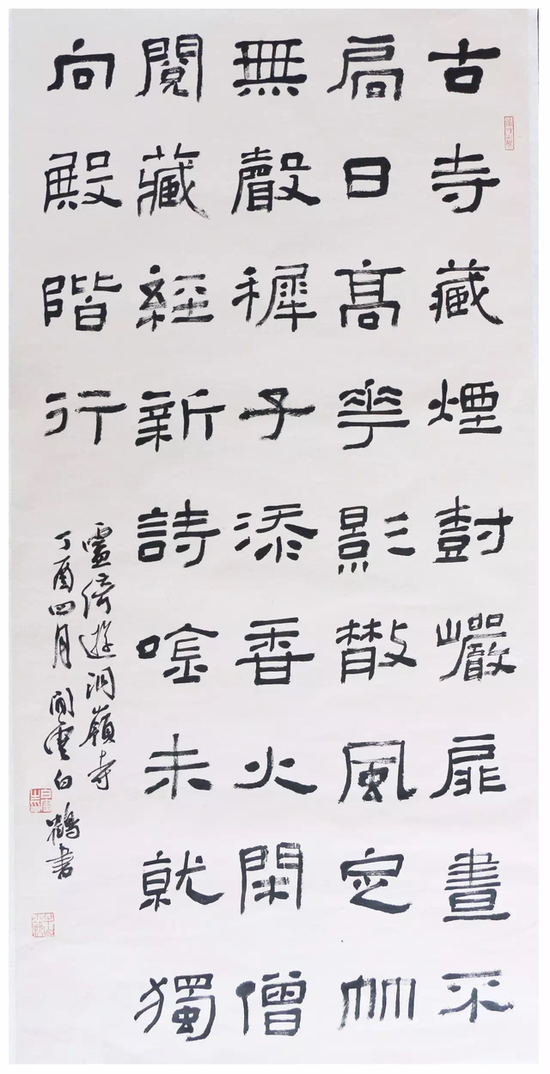 古寺藏煙封巗扉晝不
扃日髙華影散風定竹
無聲稺子添香火閑僧
閱藏經新詩唫未就獨
向殿階行
盧琦遊洞嶺寺
丁酉四月閒雲白鶴書